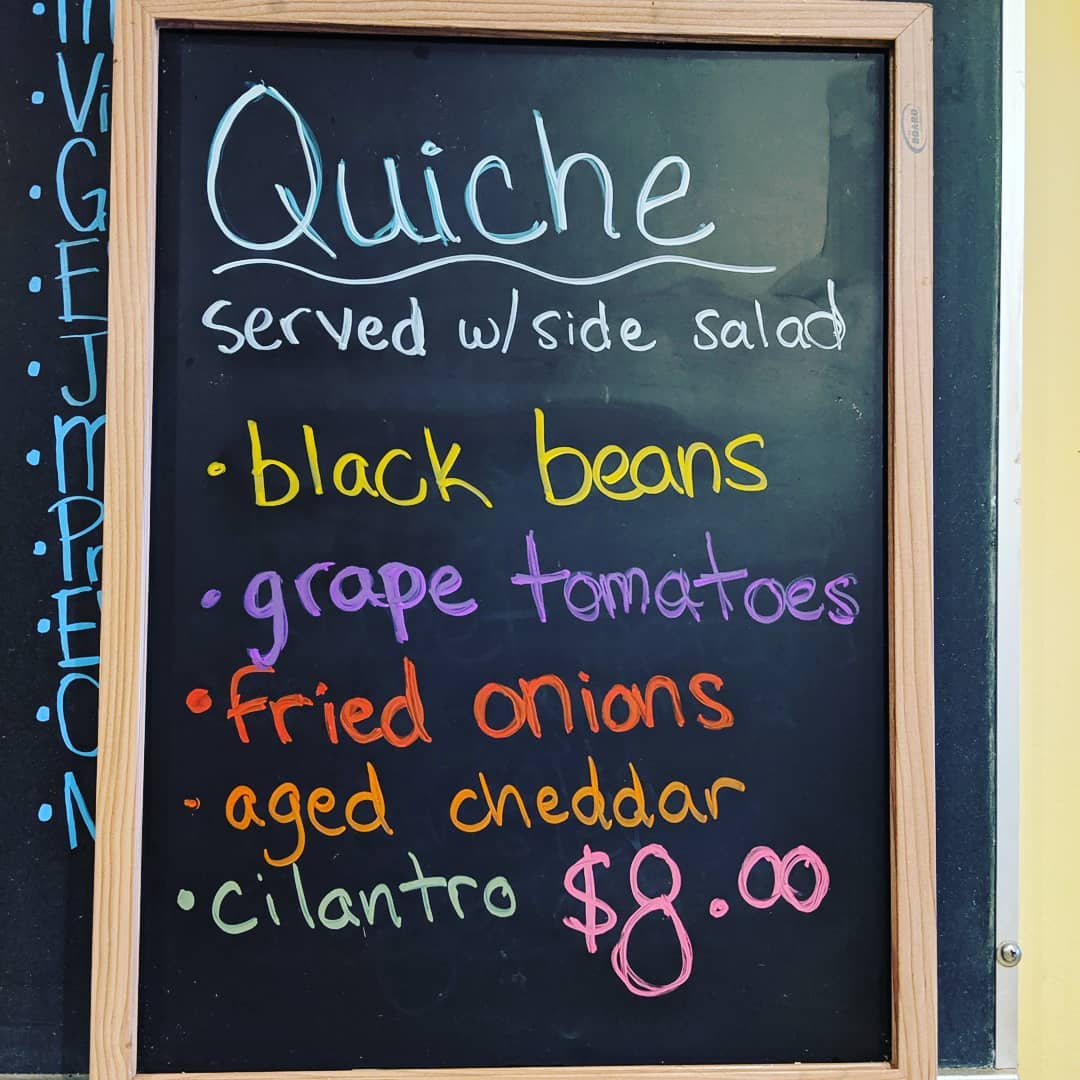 Quiche
served w/ side salad
• black beans
• grape tomatoes
• fried onions
• aged cheddar
• cilantro $8.00